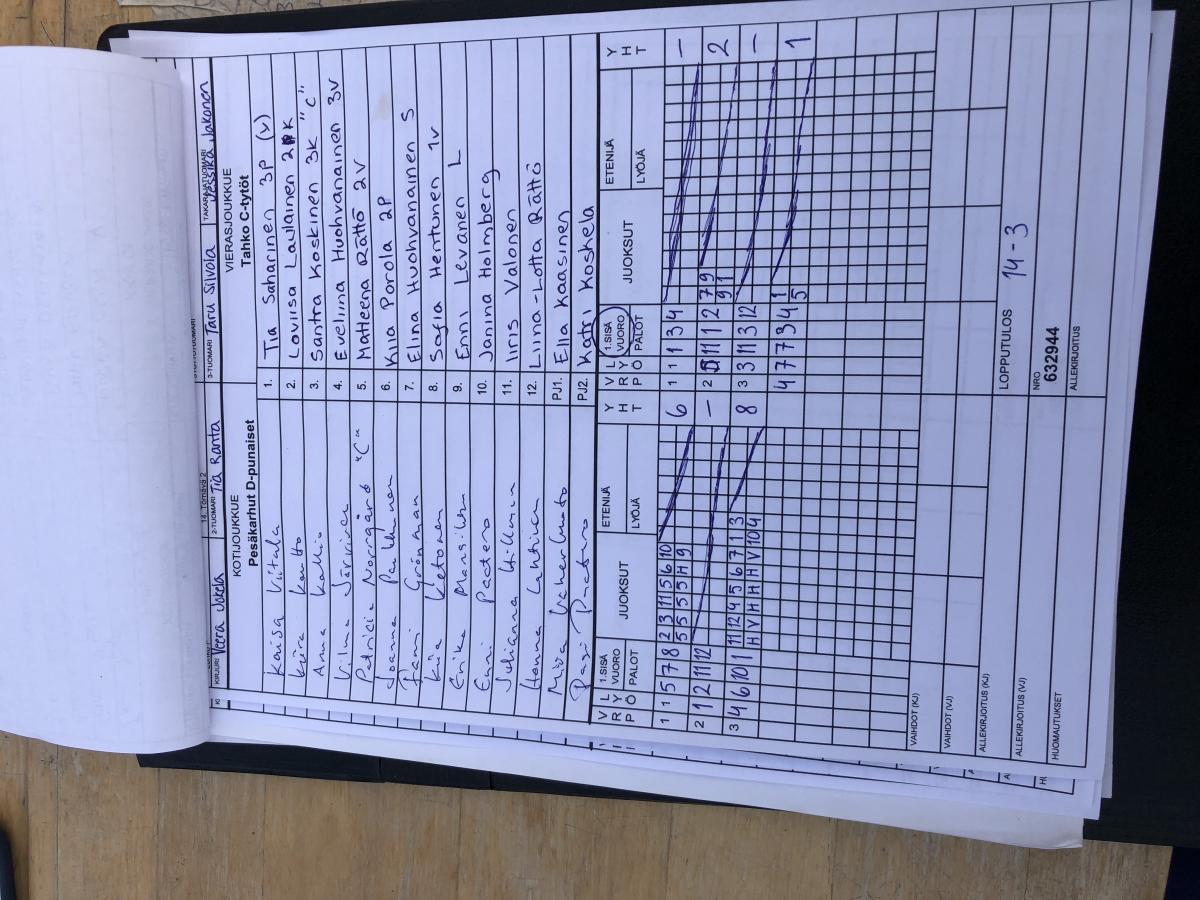 14. Törnävä 2
KIRJURI Veera Jokela
2-TUOMARI Tia Ranta
3-TUOMARI Taru Silvola
TAKARAJATUOMARI Jessika Jakonen
KOTIJOUKKUE
Pesäkarhut D-punaiset
VIERASJOUKKUE
Tahko C-tytöt
Kaisa Viitala
Anna Kahio
Vilma Järvinen
Patricia Norrgård "C"
Fanni Grönman
Kiia Ketonen
Enni Paatero
Julianna
Hanna Lahtinen
Pasi Paatero
1. Tia Saharinen 3P (v)
2. Loviisa Laulainen 2K
3. Santra Koskinen 3K "C"
4. Eveliina Huohvanainen 3V
5. Matleena Rättö 2V
6. Kiia Porola 2P
7. Elina Huohvanainen S
8. Sofia Hentunen 1V
9. Enni Levanen L
10. Janina Holmberg
11. Iiris Valonen
12. Liina-Lotta Rättö
PJ1. Ella Kaasinen
PJ2. Katri Koskela
V R P L Y Ö 1.SISÄ VUORO PALOT JUOKSUT ETENIJÄ LYÖJÄ Y H T
1 1 5 7 8 2 3 11 5 6 10 6
5 5 5 5 H 9
2 1 2 11 12 –
3 4 6 10 1 11 12 4 5 6 7 1 3 8
H V H H H V 10 4
V R P L Y Ö 1.SISÄ VUORO PALOT JUOKSUT ETENIJÄ LYÖJÄ Y H T
1 1 1 3 4 –
2 11 11 2 7 9 2
9 1
3 3 11 3 12 –
4 7 7 3 4 1 1
5
VAIHDOT (KJ)
VAIHDOT (VJ)
ALLEKIRJOITUS (KJ)
ALLEKIRJOITUS (VJ)
HUOMAUTUKSET
LOPPUTULOS 14-3
NRO
632944
ALLEKIRJOITUS